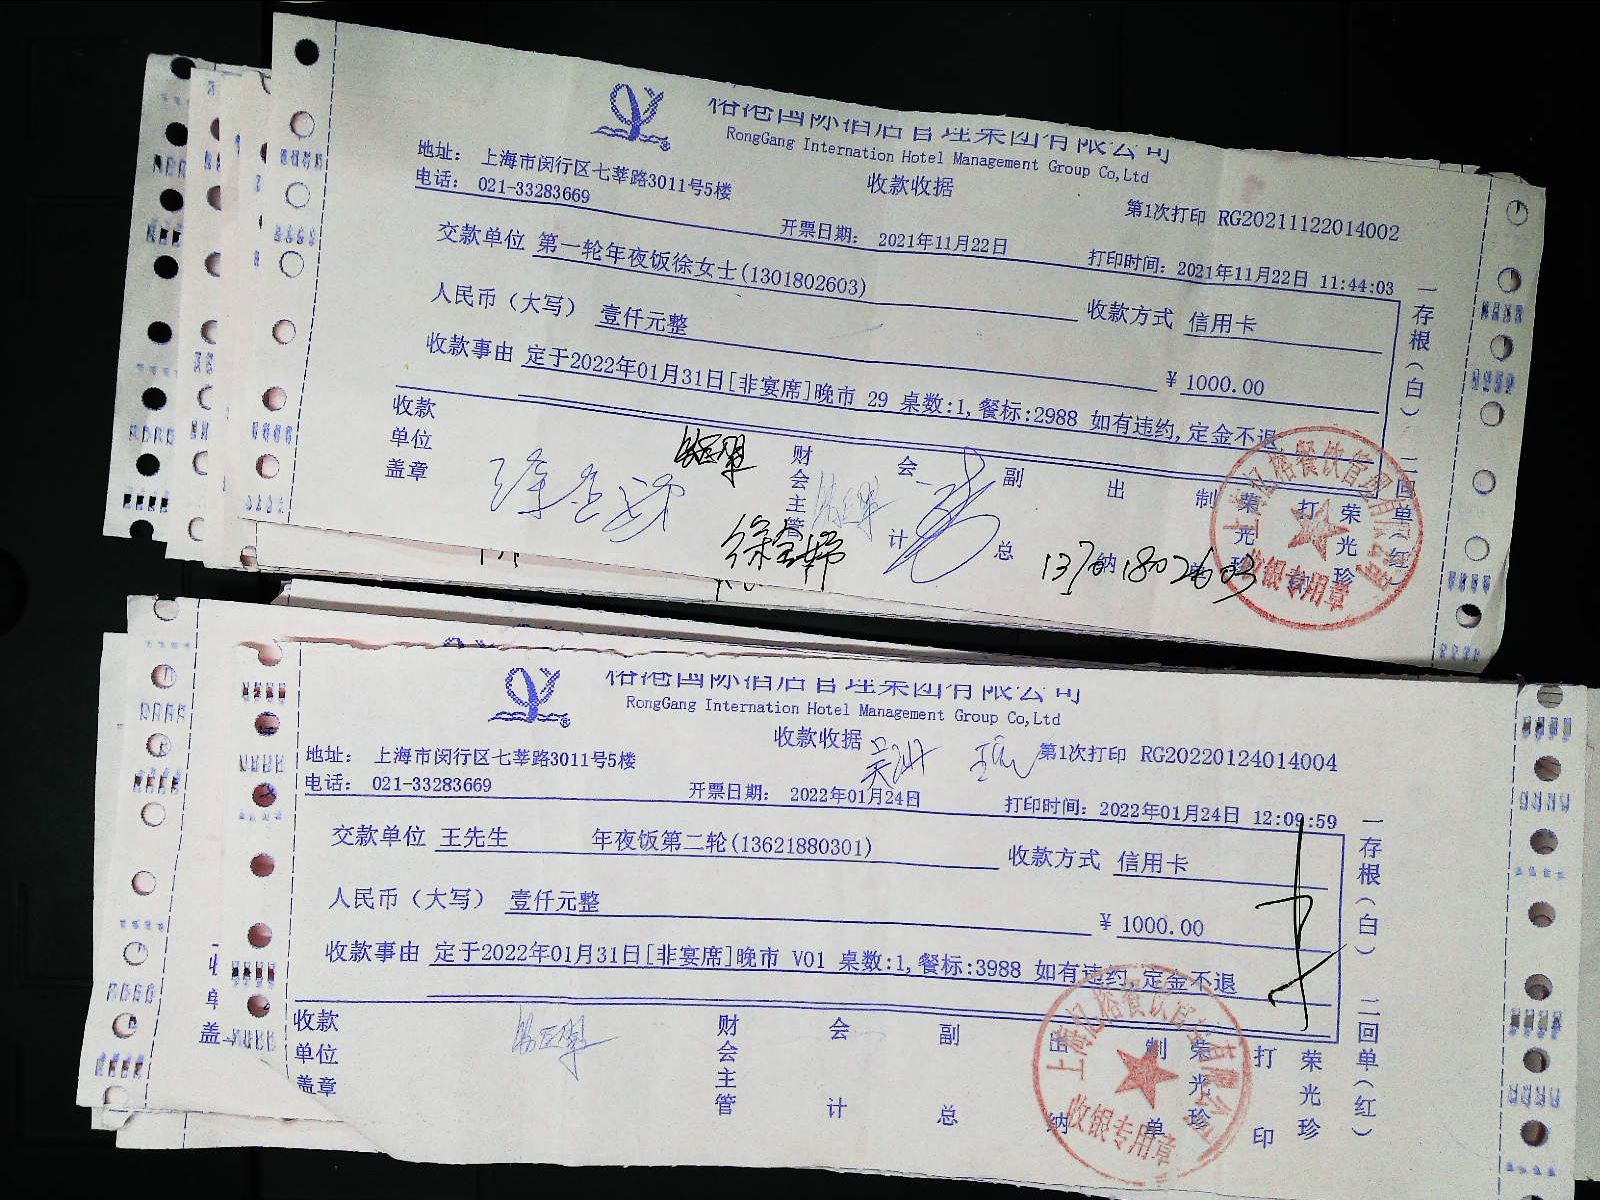 RongGang Internation Hotel Management Group Co,Ltd
地址： 上海市闵行区七莘路3011号5楼
收款收据
第1次打印 RG20211122014002
电话： 021-33283669
开票日期： 2021年11月22日
打印时间：2021年11月22日 11:44:03
交款单位 第一轮年夜饭徐女士(1301802603)
收款方式 信用卡
人民币（大写） 壹仟元整
￥ 1000.00
收款事由 定于2022年01月31日[非宴席]晚市 29 桌数:1,餐标:2988 如有违约,定金不退
一存根（白） 二回单（红）
收款单位盖章
财会主管
会计
副总
出纳
制单
荣光珍
打印
荣光珍
收银专用章
RongGang Internation Hotel Management Group Co,Ltd
收款收据
第1次打印 RG20220124014004
地址： 上海市闵行区七莘路3011号5楼
电话： 021-33283669
开票日期： 2022年01月24日
打印时间：2022年01月24日 12:09:59
交款单位 王先生 年夜饭第二轮(13621880301)
收款方式 信用卡
人民币（大写） 壹仟元整
￥ 1000.00
收款事由 定于2022年01月31日[非宴席]晚市 V01 桌数:1,餐标:3988 如有违约,定金不退
一存根（白） 二回单（红）
收款单位盖章
财会主管
会计
副总
出纳
制单
荣光珍
打印
荣光珍
收银专用章